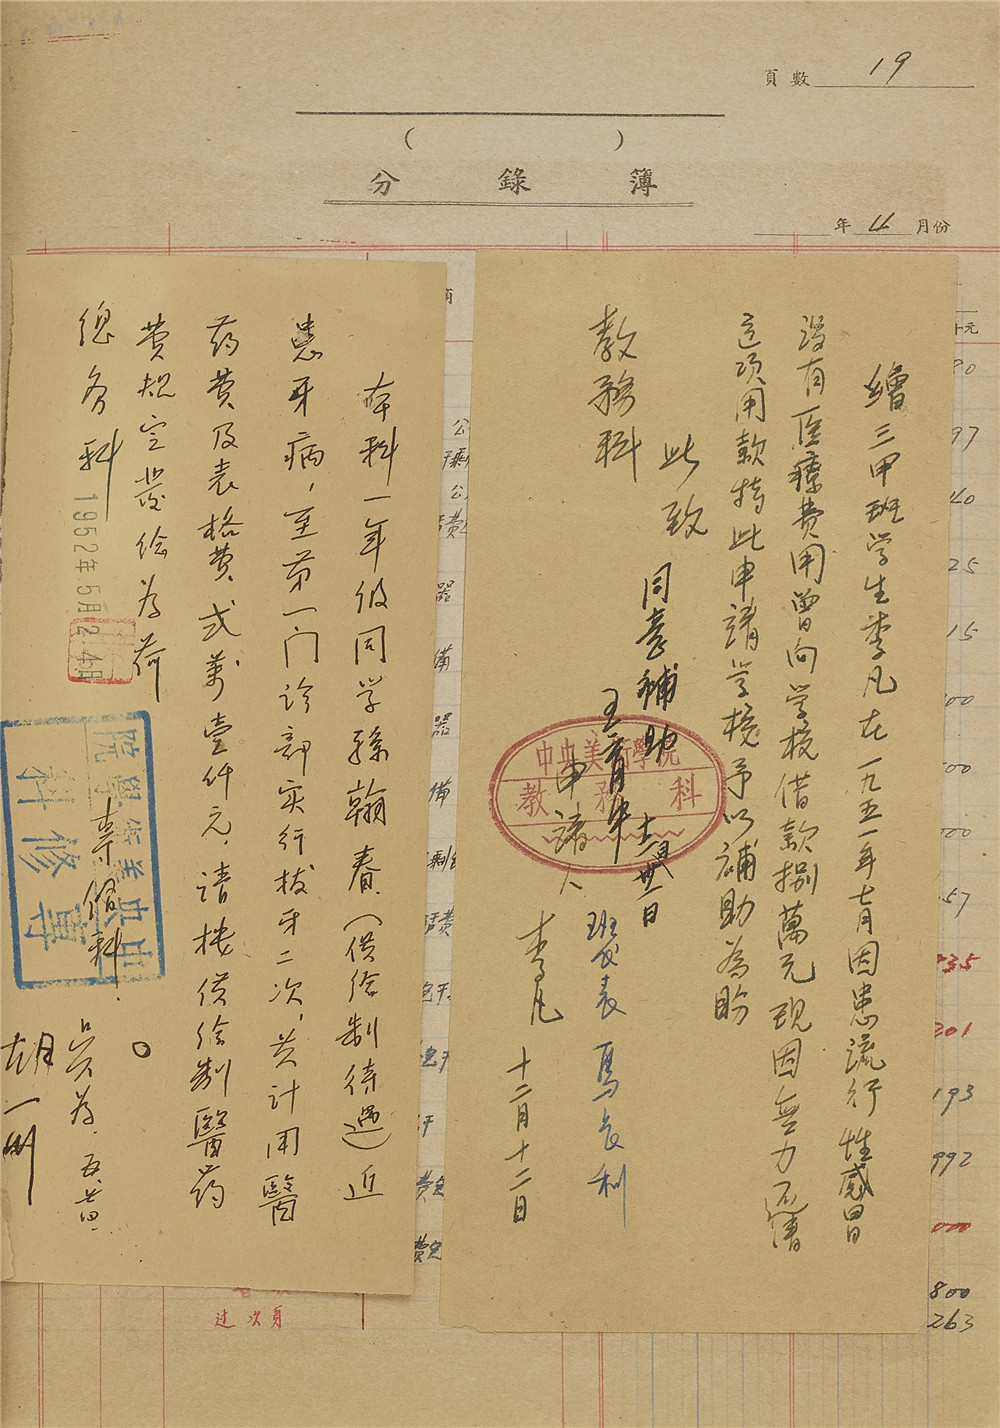 頁數 19
( )
分錄簿
年 11 月份
繪三甲班学生李凡在一九五一年七月因患流行性感冒
没有医療費用曾向学校借款捌萬元现因無力还清
这项用款特此申請学校予以補助為盼
此致
教務科
同意補助
王育中
十二月卅一日
中央美術學院
教務科
班代表 馬長利
申請人 李凡 十二月十二日
本科一年级同学孫翰春(供给制待遇)近
患牙病，至第一门诊部实行拔牙二次，共计用醫
药费及表格费弍萬壹仟元，请按供给制醫药
费规定发给为荷
總务科
1952年5月24日
中央美術學院
專修科
专修科
吴为 五.廿四.
胡一川
过次頁
97
40
25
15
57
335
201
193
992
000
800
263